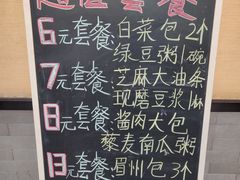 超值套餐
6元套餐 白菜包2个
绿豆粥1碗
7元套餐 芝麻大油条
现磨豆浆
8元套餐 酱肉大包
藜麦南瓜粥
13元套餐 眉州包3个